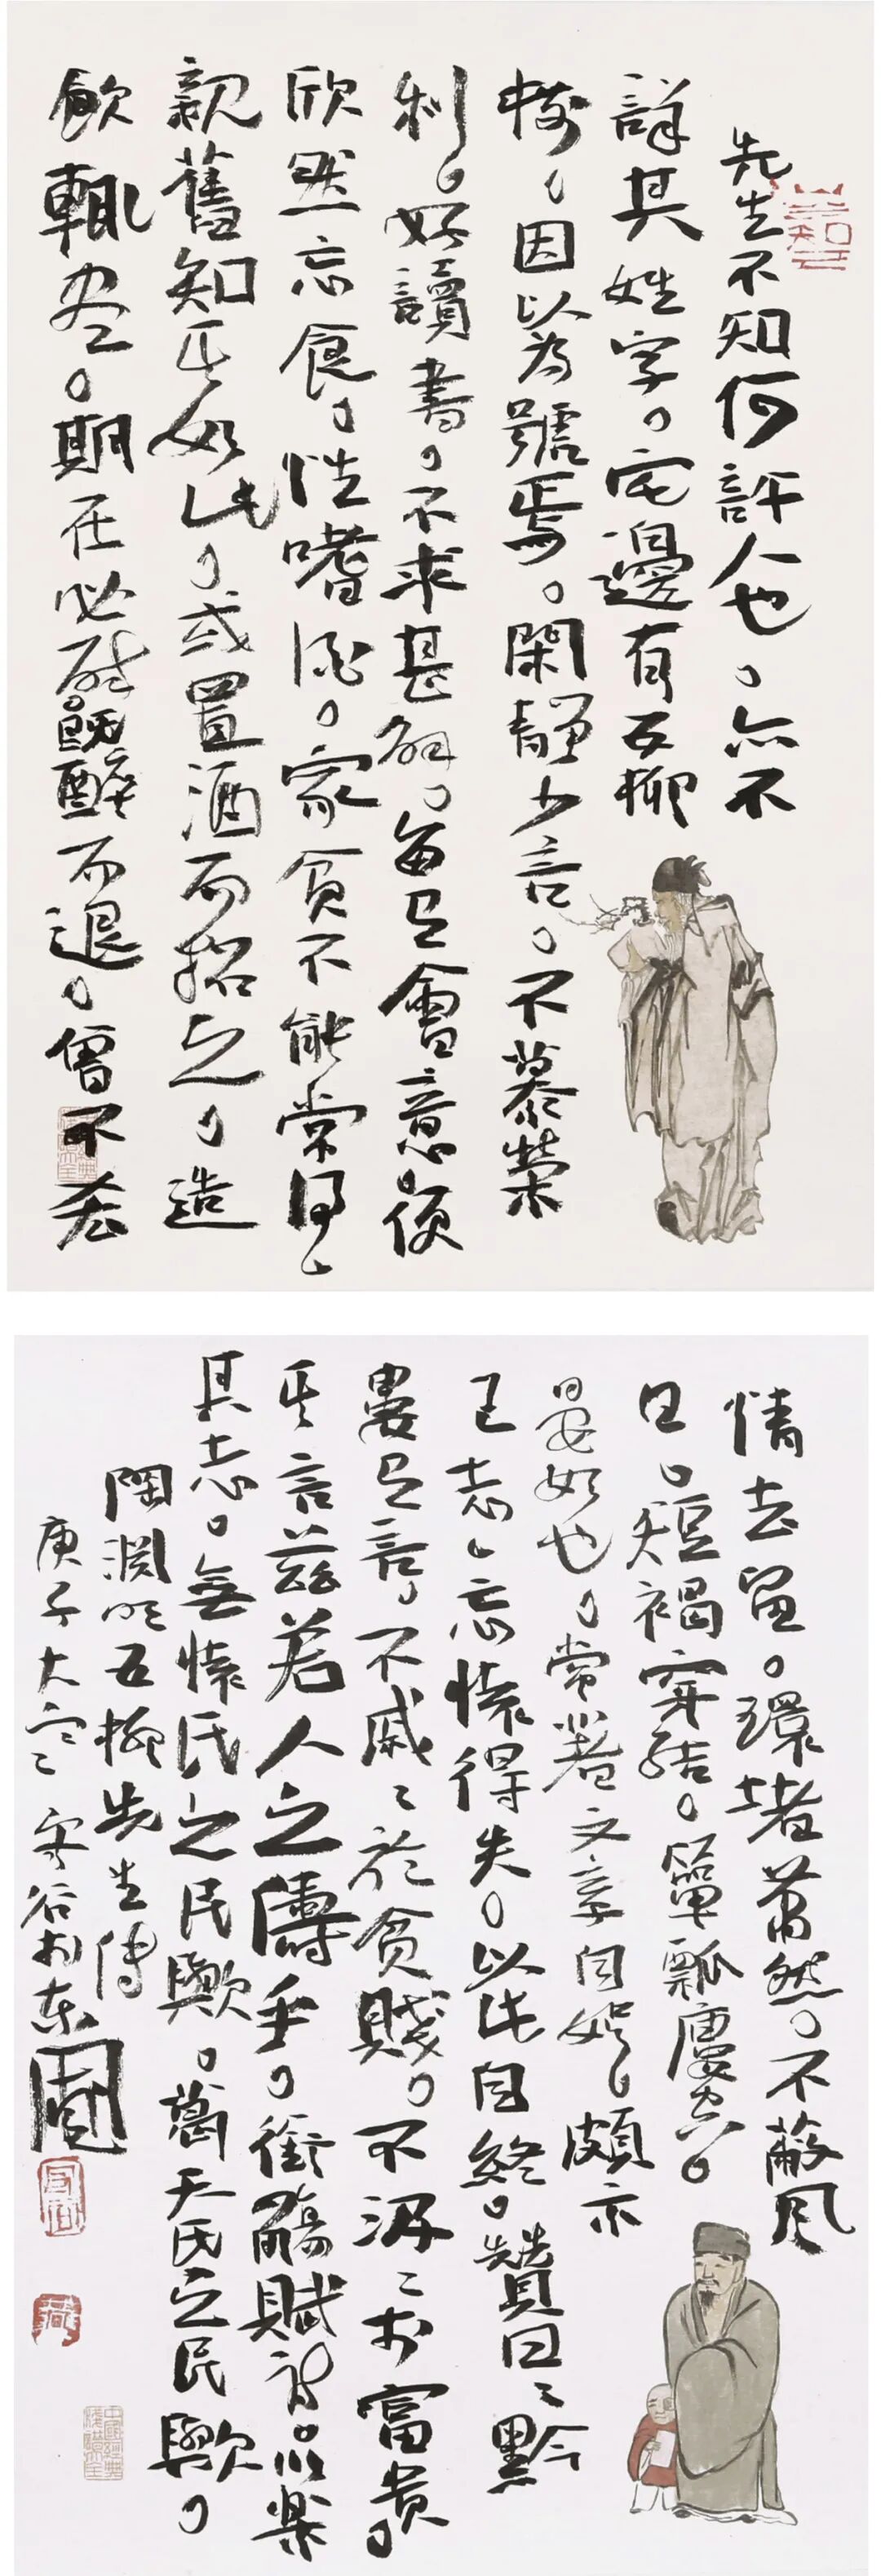 先生不知何許人也。亦不
詳其姓字。宅邊有五柳
樹。因以為號焉。閑靜少言。不慕榮
利。好讀書。不求甚解。每有會意便
欣然忘食。性嗜酒。家貧不能常得。
親舊知其如此。或置酒而招之。造
飲輒盡。期在必醉。既醉而退。曾不吝
情去留。環堵蕭然。不蔽風
日。短褐穿結。簞瓢屢空。
晏如也。常著文章自娛。頗示
己志。忘懷得失。以此自終。贊曰。黔
婁有言。不戚〻於貧賤。不汲〻於富貴。
其言茲若人之儔乎。銜觴賦詩。以樂
其志。無懷氏之民歟。葛天氏之民歟。
陶淵明五柳先生傳
庚子大寒 谷於東